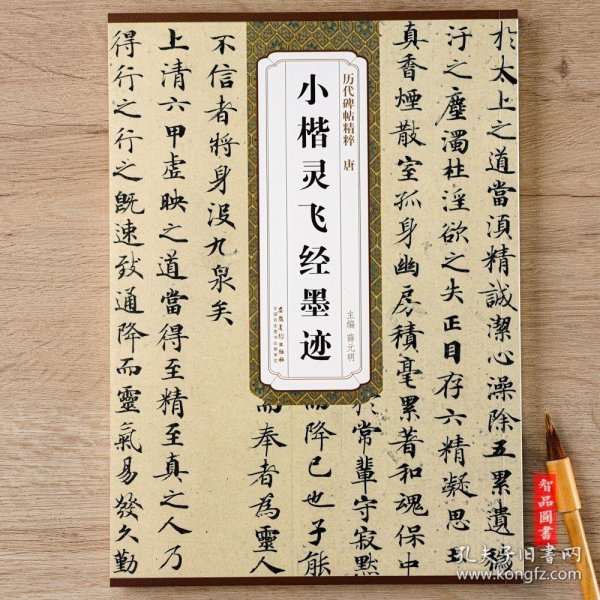 於太上之道當湏精誠潔心澡除五累遺
汙之塵濁杜淫欲之失正目存六精凝思
真香煙散室孤身幽房積毫累著和魂保中
於常輩守寂默
而降已也子能
而奉者為靈人
历代碑帖精粹 唐
小楷灵飞经墨迹
主编 薛元明
安徽美术出版社
全国百佳图书出版单位
不信者將身没九泉矣
上清六甲虛映之道當得至精至真之人乃
得行之行之既速致通降而靈氣易發久勤
智品圖書
孔夫子旧书网
www.kongfz.com